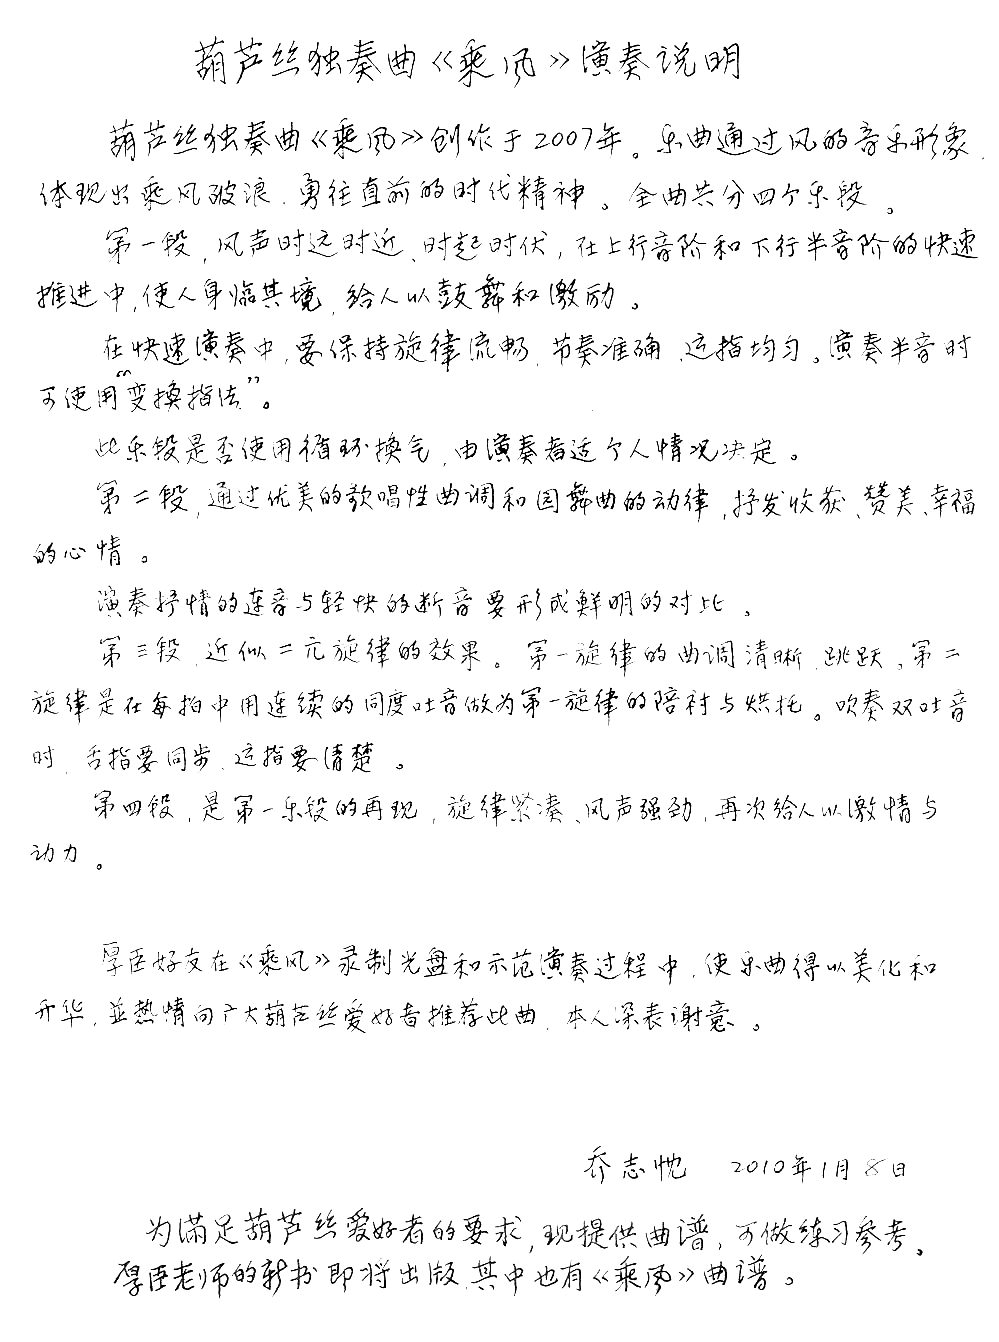 葫芦丝独奏曲《乘风》演奏说明
葫芦丝独奏曲《乘风》创作于2007年。乐曲通过风的音乐形象,
体现出乘风破浪、勇往直前的时代精神。全曲共分四个乐段。
第一段,风声时远时近、时起时伏,在上行音阶和下行半音阶的快速
推进中,使人身临其境,给人以鼓舞和激励。
在快速演奏中,要保持旋律流畅、节奏准确、运指均匀。演奏半音时
可使用“变换指法”。
此乐段是否使用循环换气,由演奏者适个人情况决定。
第二段,通过优美的歌唱性曲调和圆舞曲的动律,抒发收获、赞美、幸福
的心情。
演奏抒情的连音与轻快的断音要形成鲜明的对比。
第三段,近似二元旋律的效果。第一旋律的曲调清晰、跳跃,第二
旋律是在每拍中用连续的同度吐音做为第一旋律的陪衬与烘托。吹奏双吐音
时,舌指要同步、运指要清楚。
第四段,是第一乐段的再现,旋律紧凑、风声强劲,再次给人以激情与
动力。
厚臣好友在《乘风》录制光盘和示范演奏过程中,使乐曲得以美化和
升华,並热情向广大葫芦丝爱好者推荐此曲,本人深表谢意。
乔志忱 2010年1月8日
为满足葫芦丝爱好者的要求,现提供曲谱,可做练习参考。
厚臣老师的新书即将出版,其中也有《乘风》曲谱。